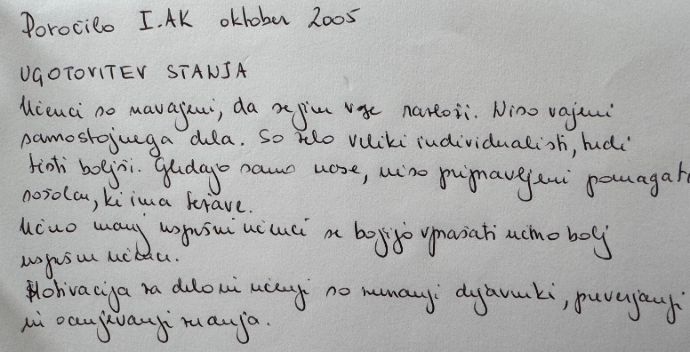 Poročilo I.AK oktober 2005
UGOTOVITEV STANJA
Učenci so navajeni, da se jim vse naroči. Niso vajeni
samostojnega dela. So zelo veliki individualisti, tudi
tisti boljši. Gledajo samo nase, niso pripravljeni pomagati
sošolcu, ki ima težave.
Učno manj uspešni učenci se bojijo vprašati učno bolj
uspešne učence.
Motivacija za delo in učenje so zunanji dejavniki, preverjanje
in ocenjevanje znanja.